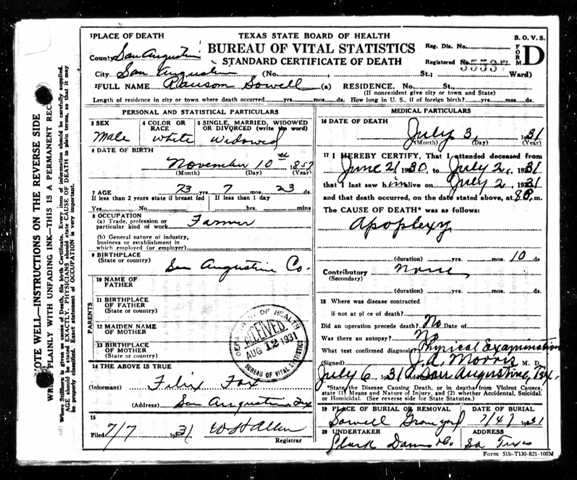 TEXAS STATE BOARD OF HEALTH
BUREAU OF VITAL STATISTICS
STANDARD CERTIFICATE OF DEATH
B. O. V. S.
FORM D
Reg. Dis. No.
Registered No. 35537
1 PLACE OF DEATH
County San Augustine
City San Augustine (No. St.; Ward)
2 FULL NAME Sowell (a) RESIDENCE. No. St.
(If nonresident give city or town and State)
Length of residence in city or town where death occurred yrs. mos. ds. How long in U. S., if of foreign birth? yrs. mos. ds.
PERSONAL AND STATISTICAL PARTICULARS
3 SEX
Male
4 COLOR OR RACE
White
5 SINGLE, MARRIED, WIDOWED OR DIVORCED (write the word)
Widowed
6 DATE OF BIRTH
November 10th 1857
(Month) (Day) (Year)
7 AGE
73 7 23
If less than 2 years state if breast fed If less than 1 day
Yes No hrs. mins
8 OCCUPATION
(a) Trade, profession or particular kind of work
Farmer
(b) General nature of industry, business or establishment in which employed (or employer)
9 BIRTHPLACE
(State or country)
San Augustine Co.
PARENTS
10 NAME OF FATHER
11 BIRTHPLACE OF FATHER
(State or country)
12 MAIDEN NAME OF MOTHER
13 BIRTHPLACE OF MOTHER
(State or country)
RECEIVED
AUG 12 1931
BUREAU OF VITAL STATISTICS
14 THE ABOVE IS TRUE
(Informant) Felix Fox
(Address) San Augustine Tex
15
Filed 7/7 31 W H Allen
Registrar
MEDICAL PARTICULARS
16 DATE OF DEATH
July 3, 1931
(Month) (Day) (Year)
17 I HEREBY CERTIFY, That I attended deceased from
June 21 1930, to July 2, 1931
that I last saw him alive on July 2 1931
and that death occurred, on the date stated above, at
The CAUSE OF DEATH* was as follows:
Apoplexy
(duration) yrs. mos. 10 ds.
Contributory None
(Secondary)
(duration) yrs. mos. ds.
18 Where was disease contracted
if not at place of death?
Did an operation precede death? No Date of
Was there an autopsy? No
What test confirmed diagnosis? Physical Examination
(Signed) M. D.
July 6, 1931 San Augustine, Tex.
*State the Disease Causing Death, or in deaths from Violent Causes, state (1) Means and Nature of Injury, and (2) whether Accidental, Suicidal, or Homicidal. (See reverse side for State Statutes)
19 PLACE OF BURIAL OR REMOVAL
Sowell Graveyard
DATE OF BURIAL
7/4 1931
20 UNDERTAKER
Clark
ADDRESS
Form 51b-T130-821-100M
NOTE WELL—INSTRUCTIONS ON THE REVERSE SIDE
PLAINLY WITH UNFADING INK—THIS IS A PERMANENT REC